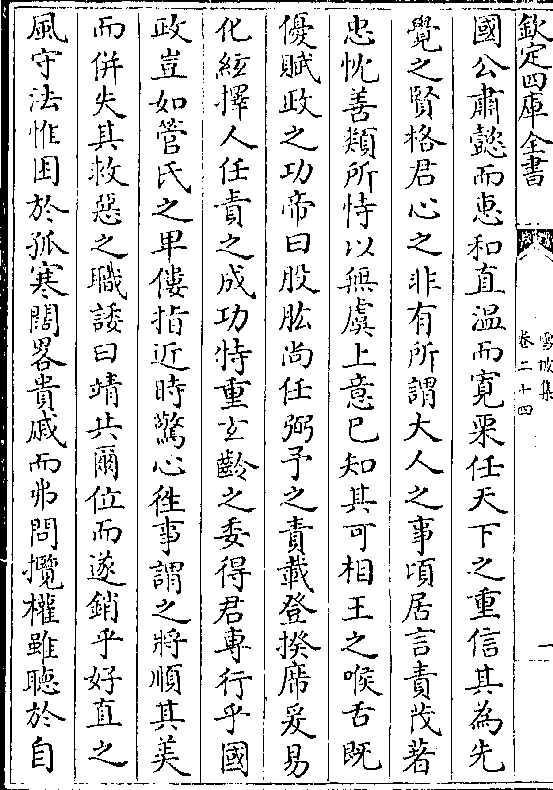 欽定四庫全書
雪坡集
卷二十四
一
國公肅懿而惠和直溫而寛栗任天下之重信其為先
覺之賢格君心之非有所謂大人之事頃居言責茂著
忠忱善類所恃以無虞上意已知其可相王之喉舌既
優賦政之功帝曰股肱尚任弼予之責載登揆席爰易
化絃擇人任責之成功特重玄齡之委得君專行乎國
政豈如管氏之卑僂指近時驚心徃事謂之將順其美
而併失其救惡之職諉曰靖共爾位而遂銷乎好直之
風守法惟困於孤寒闊畧貴戚而弗問攬權雖聴於自